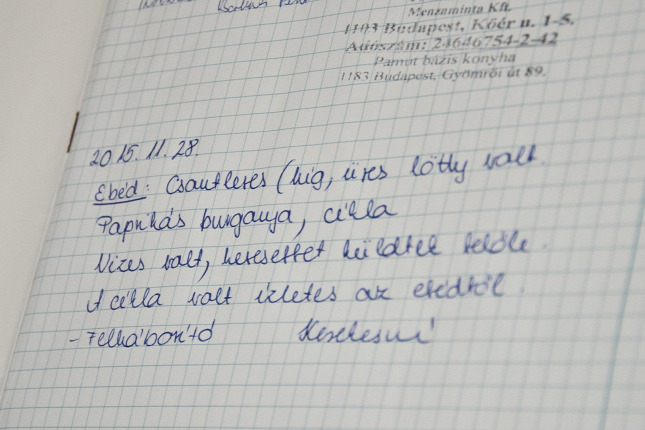 Menzaminta Kft.
1103 Budapest, Kőér u. 1-5.
Adószám: 24646754-2-42
Pamut bázis konyha
1183 Budapest, Gyömrői út 89.
2015.11.28.
Ebéd: Csontleves (híg, üres lötty volt
Paprikás burgonya, cékla
Vizes volt, keveset küldtek belőle.
A cékla volt ízletes az ebédről.
- Felháborító